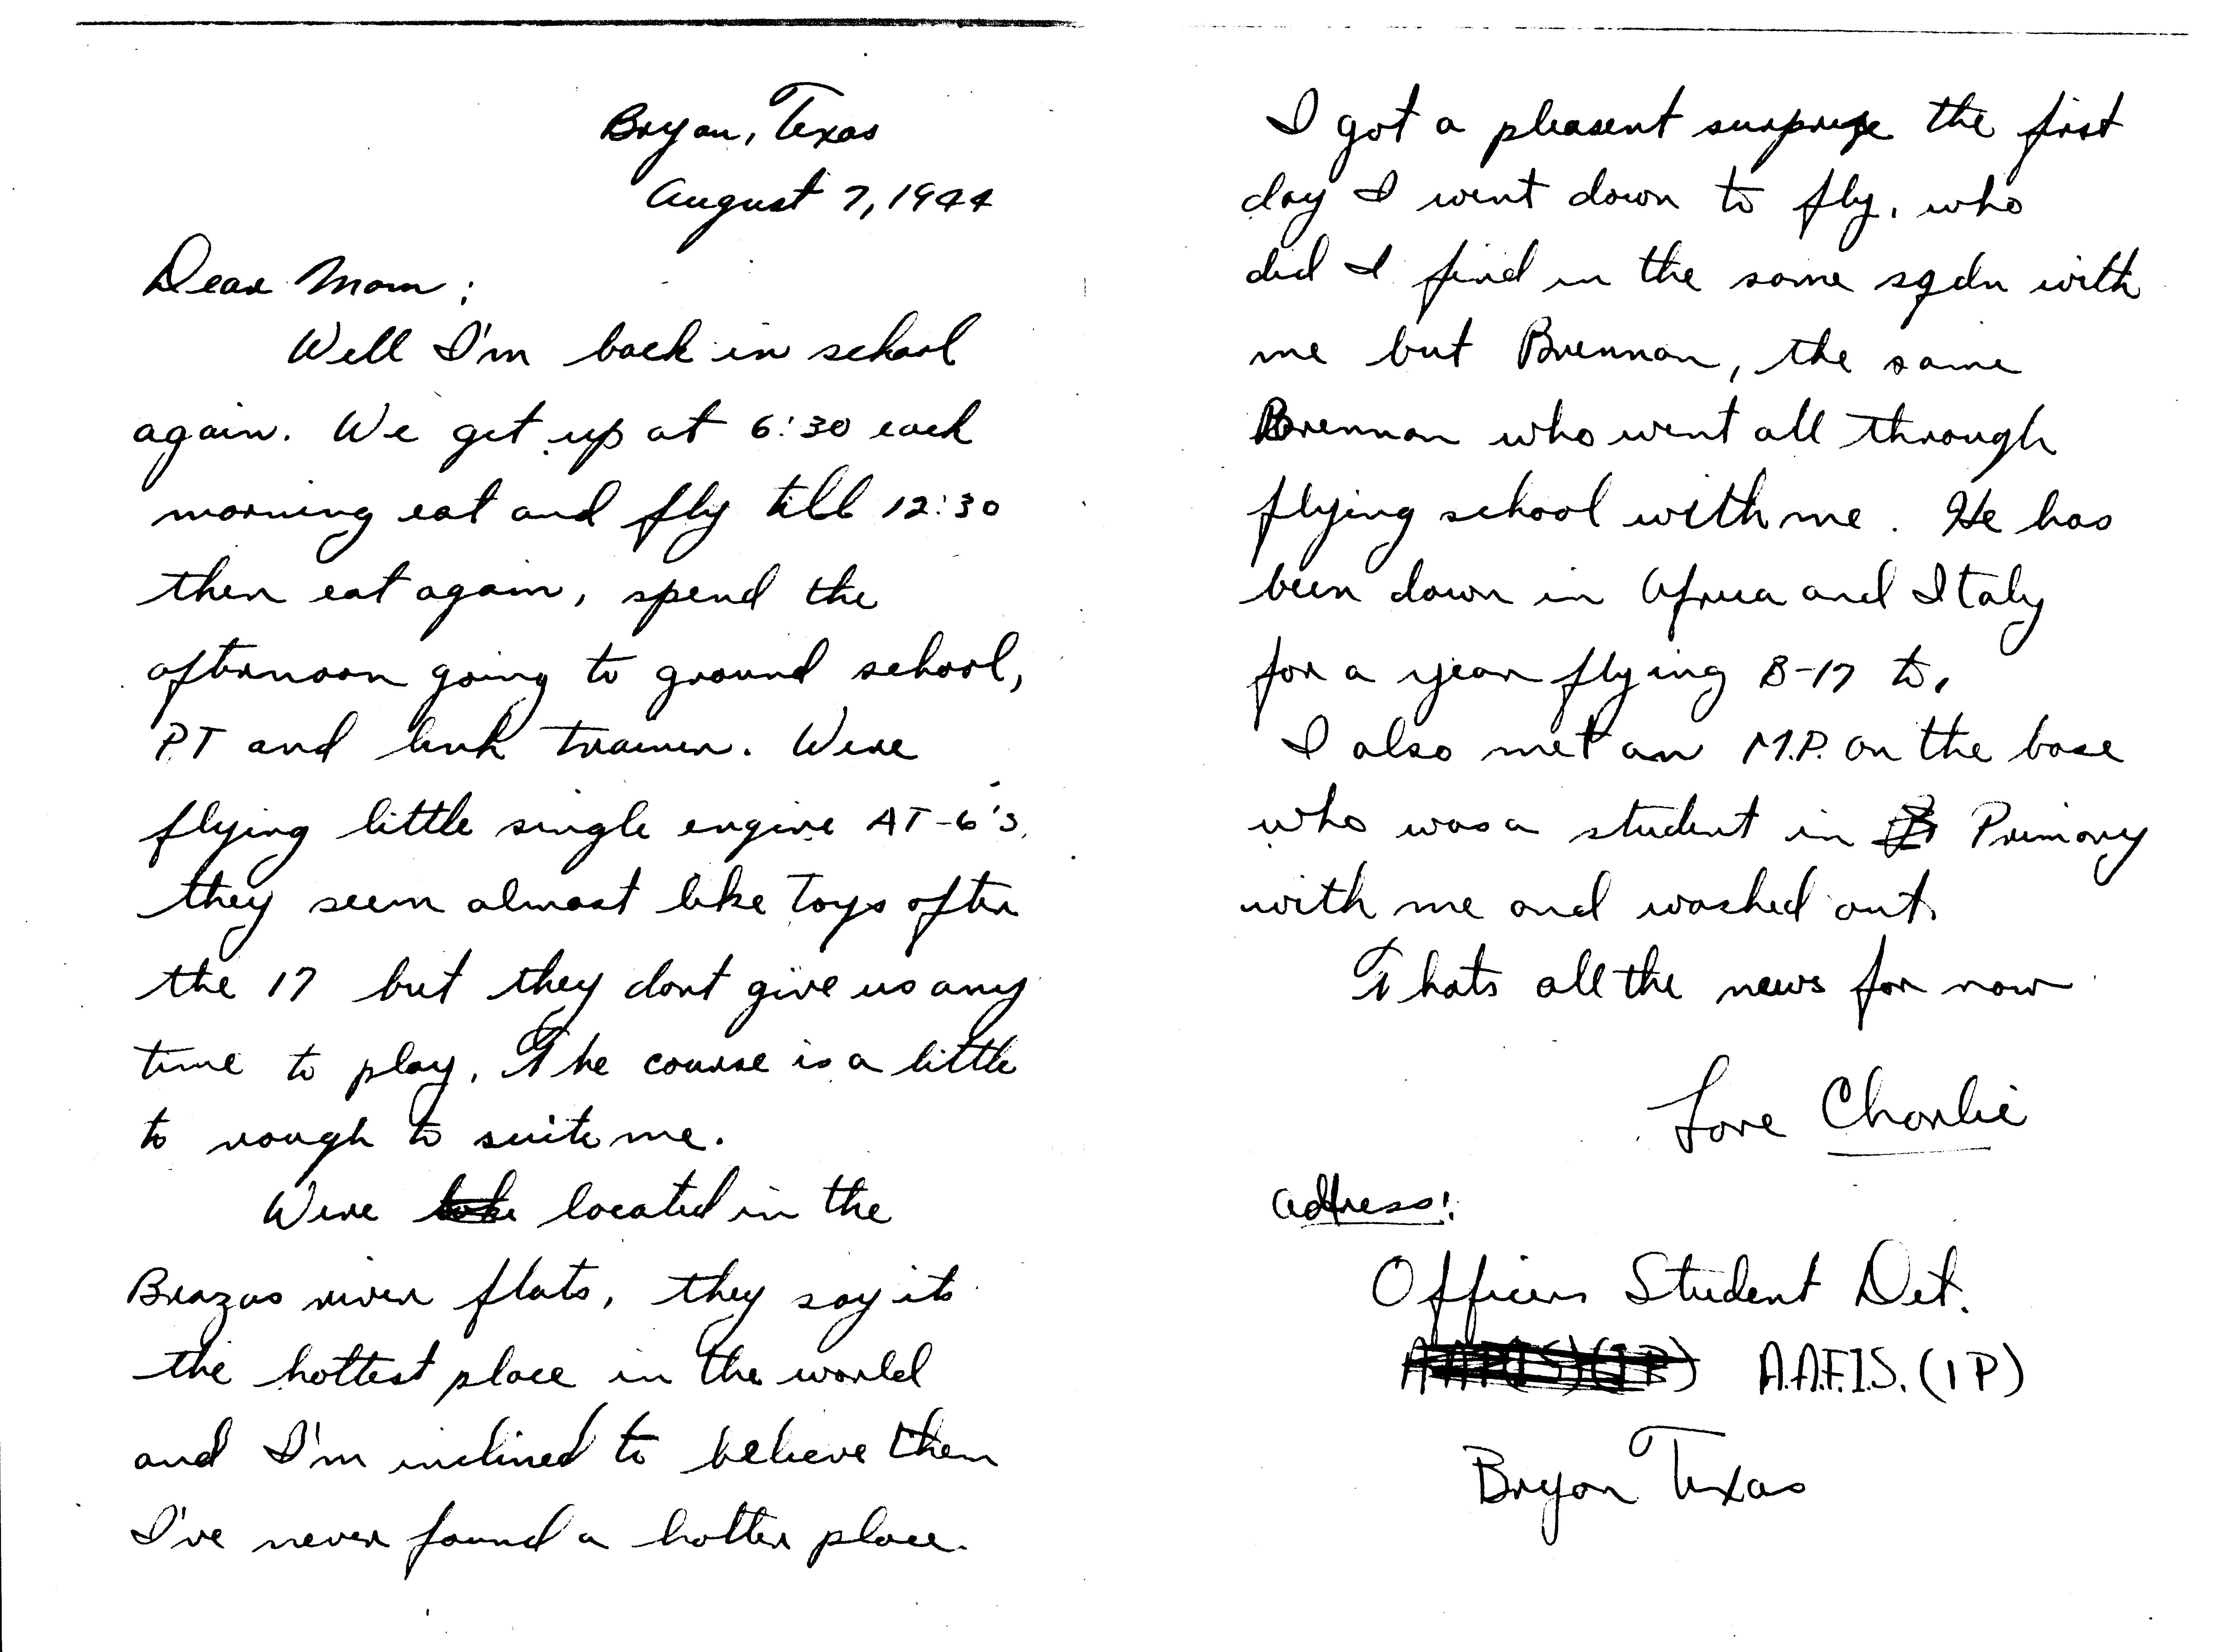 Bryan, Texas
August 7, 1944
Dear Mom:
Well I'm back in school
again. We get up at 6:30 each
morning eat and fly till 12:30
then eat again, spend the
afternoon going to ground school,
PT and link trainer. Were
flying little single engine AT-6's,
they seem almost like toys after
the 17 but they dont give us any
time to play. The course is a little
to rough to suite me.
Were located in the
Brazas river flats, they say its
the hottest place in the world
and I'm inclined to believe them
I've never found a hotter place.
I got a pleasent surprize the first
day I went down to fly, who
did I find in the same sqdn with
me but Brennan, the same
Brennan who went all through
flying school with me. He has
been down in Africa and Italy
for a year flying B-17 to,
I also met an M.P. on the base
who was a student in Primary
with me and washed out.
Thats all the news for now
Love Charlie
adress:
Officers Student Det.
A.A.F.I.S. (IP)
Bryan Texas